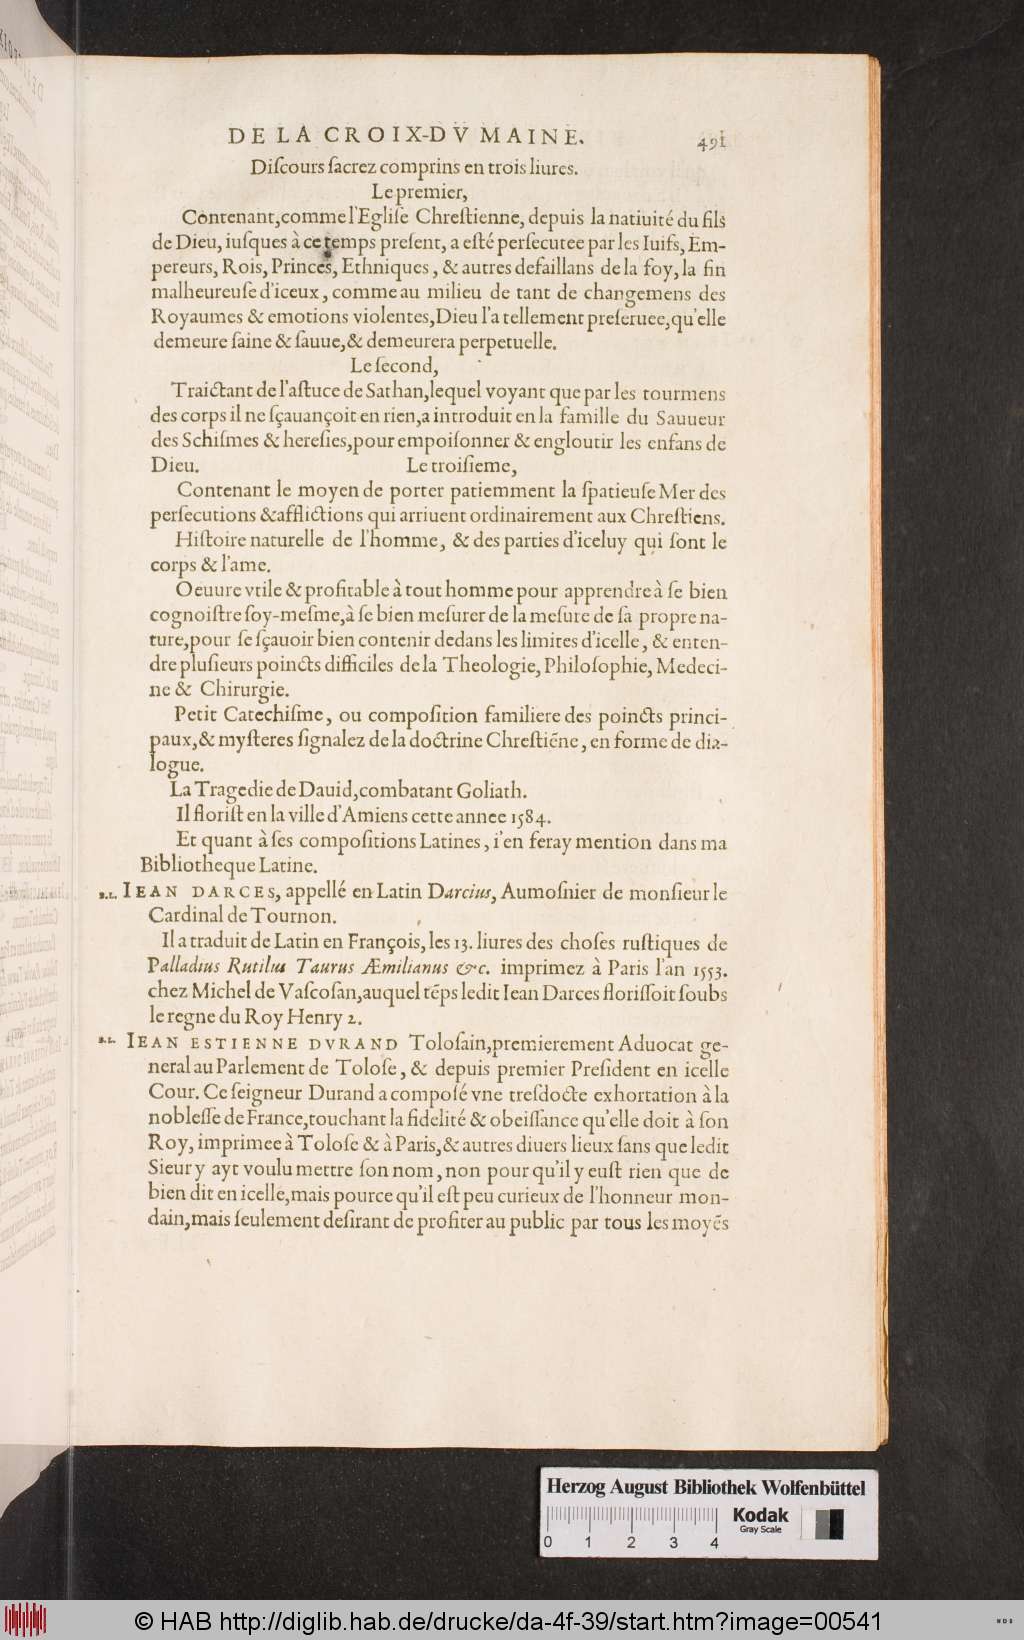 DE LA CROIX-DV MAINE. 491
Diſcours ſacrez comprins en trois liures.
Le premier,
Contenant, comme l'Egliſe Chreſtienne, depuis la natiuité du fils
de Dieu, iuſques à ce temps preſent, a eſté perſecutee par les Iuifs, Em-
pereurs, Rois, Princes, Ethniques, & autres defaillans de la foy, la fin
malheureuſe d'iceux, comme au milieu de tant de changemens des
Royaumes & emotions violentes, Dieu l'a tellement preſeruee, qu'elle
demeure ſaine & ſauue, & demeurera perpetuelle.
Le ſecond,
Traictant de l'aſtuce de Sathan, lequel voyant que par les tourmens
des corps il ne ſçauançoit en rien, a introduit en la famille du Sauueur
des Schiſmes & hereſies, pour empoiſonner & engloutir les enfans de
Dieu. Le troiſieme,
Contenant le moyen de porter patiemment la ſpatieuſe Mer des
perſecutions & afflictions qui arriuent ordinairement aux Chreſtiens.
Hiſtoire naturelle de l'homme, & des parties d'iceluy qui ſont le
corps & l'ame.
Oeuure vtile & profitable à tout homme pour apprendre à ſe bien
cognoiſtre ſoy-meſme, à ſe bien meſurer de la meſure de ſa propre na-
ture, pour ſe ſçauoir bien contenir dedans les limites d'icelle, & enten-
dre pluſieurs poincts difficiles de la Theologie, Philoſophie, Medeci-
ne & Chirurgie.
Petit Catechiſme, ou compoſition familiere des poincts princi-
paux, & myſteres ſignalez de la doctrine Chreſtiēne, en forme de dia-
logue.
La Tragedie de Dauid, combatant Goliath.
Il floriſt en la ville d'Amiens cette annee 1584.
Et quant à ſes compoſitions Latines, i'en feray mention dans ma
Bibliotheque Latine.
B.L. IEAN DARCES, appellé en Latin Darcius, Aumoſnier de monſieur le
Cardinal de Tournon.
Il a traduit de Latin en François, les 13. liures des choſes ruſtiques de
Palladius Rutilus Taurus Æmilianus &c. imprimez à Paris l'an 1553.
chez Michel de Vaſcoſan, auquel tēps ledit Iean Darces floriſſoit ſoubs
le regne du Roy Henry 2.
B.L. IEAN ESTIENNE DVRAND Toloſain, premierement Aduocat ge-
neral au Parlement de Toloſe, & depuis premier Preſident en icelle
Cour. Ce ſeigneur Durand a compoſé vne treſdocte exhortation à la
nobleſſe de France, touchant la fidelité & obeiſſance qu'elle doit à ſon
Roy, imprimee à Toloſe & à Paris, & autres diuers lieux ſans que ledit
Sieur y ayt voulu mettre ſon nom, non pour qu'il y euſt rien que de
bien dit en icelle, mais pource qu'il eſt peu curieux de l'honneur mon-
dain, mais ſeulement deſirant de profiter au public par tous les moyēs
Herzog August Bibliothek Wolfenbüttel
Kodak
Gray Scale
0 1 2 3 4
© HAB http://diglib.hab.de/drucke/da-4f-39/start.htm?image=00541